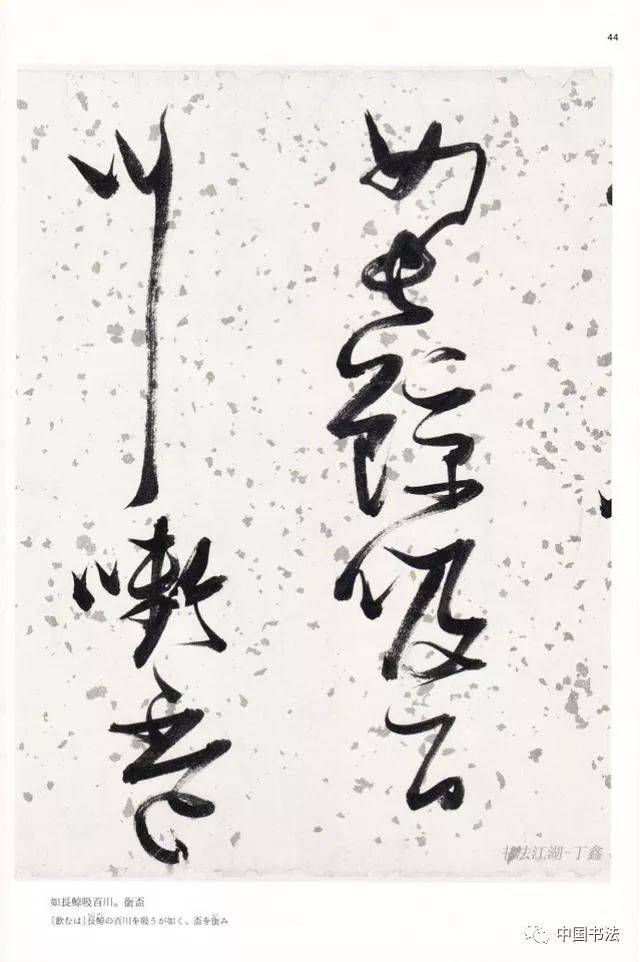 44
如長鯨吸百
川銜盃
书法江湖-丁鑫
如長鯨吸百川。銜盃
〔飲むは〕長鯨の百川を吸うが如く、盃を銜み
中国书法